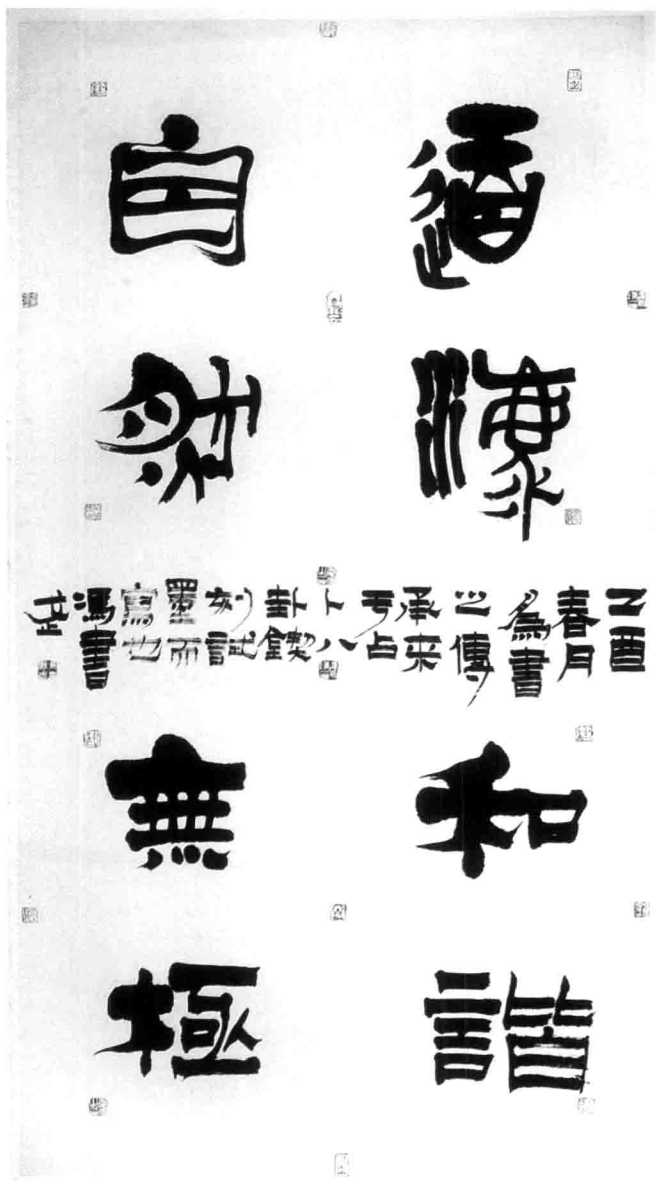 道灋
自然
乙酉
春月
為書
之傳
承來
于占
卜八
卦鍥
刻試
墨而
寫也
馮書
和諧
無極